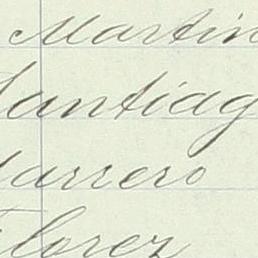 Martin
Santiag
Marrero
Florez